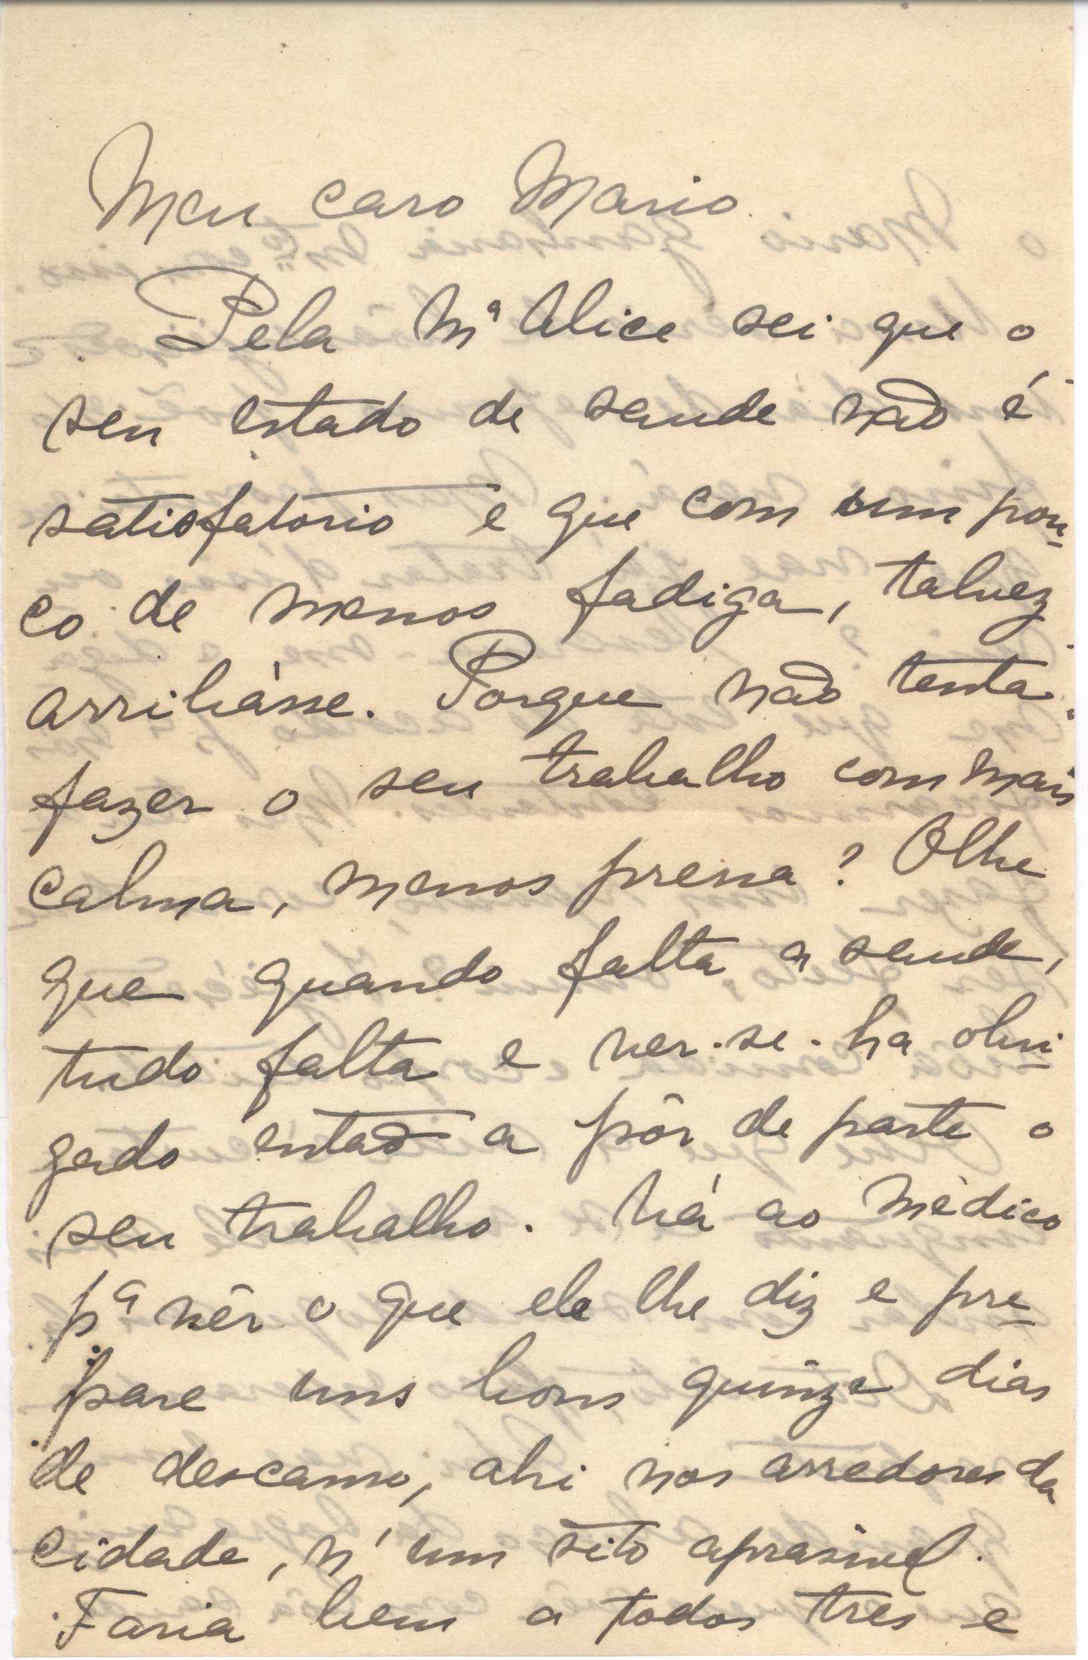 Meu caro Mario.
Pela Mª Alice sei que o
seu estado de saude não é
satisfatorio e que com um pou-
co de menos fadiga, talvez
arribásse. Porque não tenta
fazer o seu trabalho com mais
calma, menos pressa? Olhe
que quando falta a saude,
tudo falta e ver-se-ha obri-
gado então a pôr de parte o
seu trabalho. Vá ao médico
pª vêr o que ele lhe diz e pre-
pare uns bons quinze dias
de descanso, ahi nos arredores da
cidade, n'um sito aprasivel.
Faria bem a todos tres e